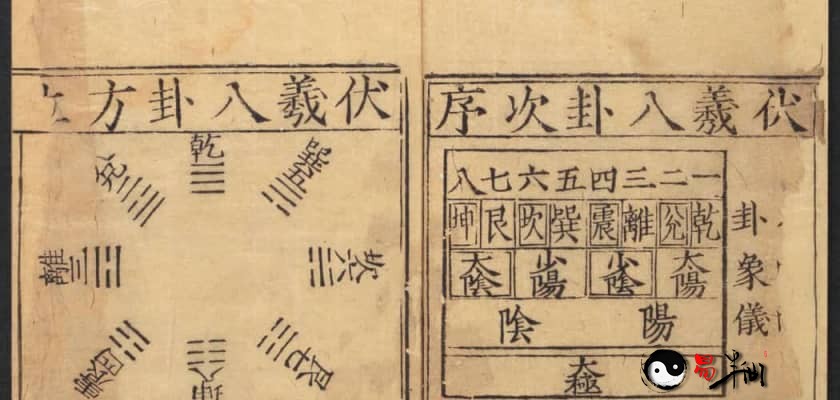 伏羲八卦次序
卦象儀
一二三四五六七八
乾兌離震巽坎艮坤
太陽 少陰 少陽 太陰
陽 陰
太極
伏羲八卦方
乾
兌
離三
震四
巽五
坎六
艮七
坤八
易半仙